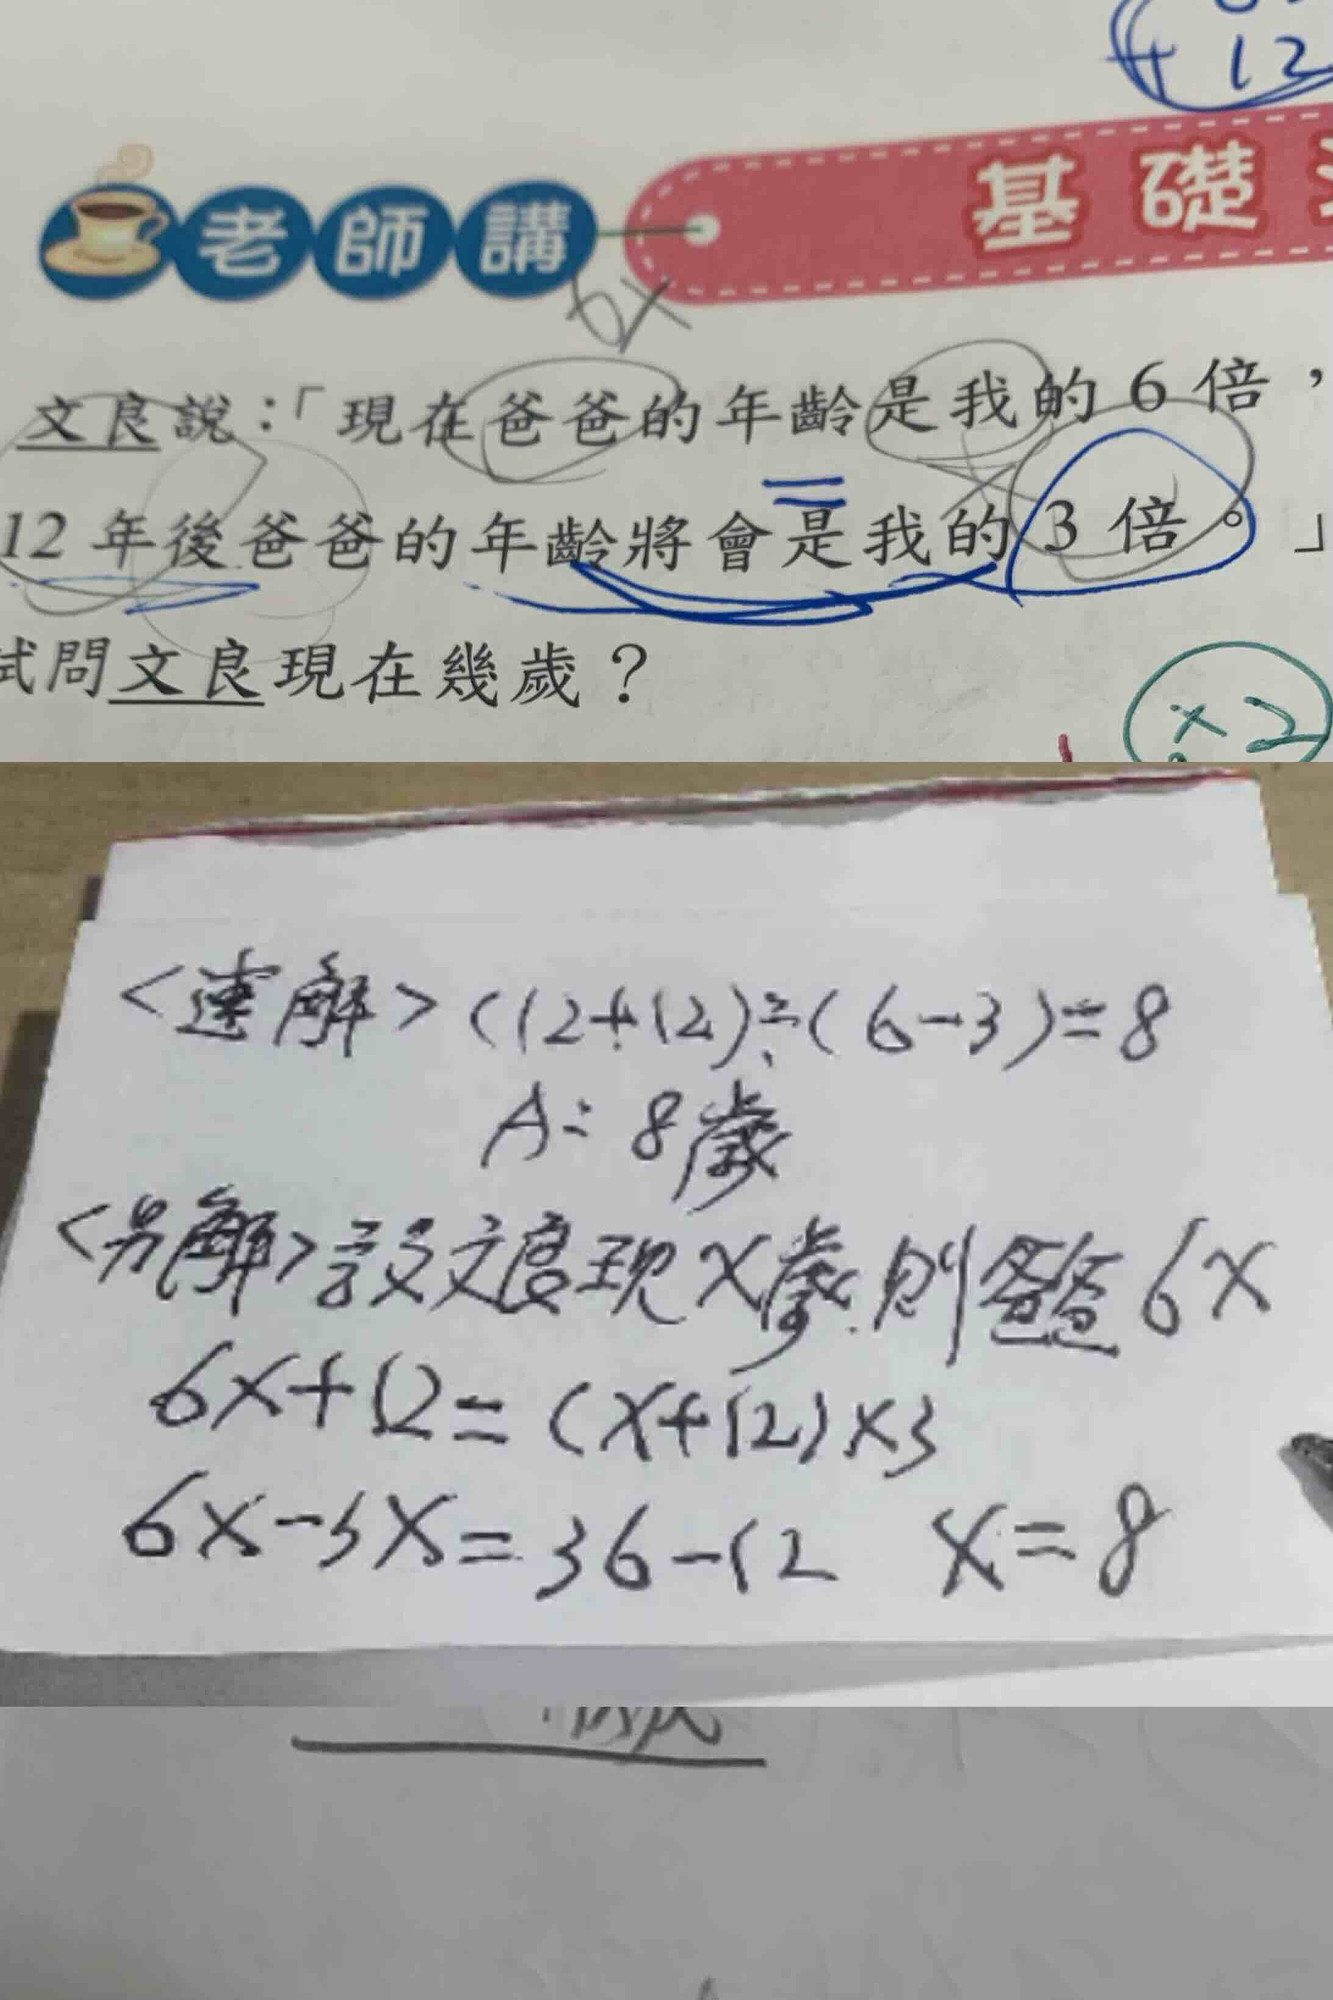 + 12
老師講
基礎
6x
文良說：「現在爸爸的年齡是我的 6 倍，
12 年後爸爸的年齡將會是我的 3 倍。」
試問文良現在幾歲？
×2
<速解> (12+12)÷(6-3)=8
A: 8歲
<另解>設文良現X歲.則爸爸6X
6X+12=(X+12)×3
6X-3X=36-12 X=8